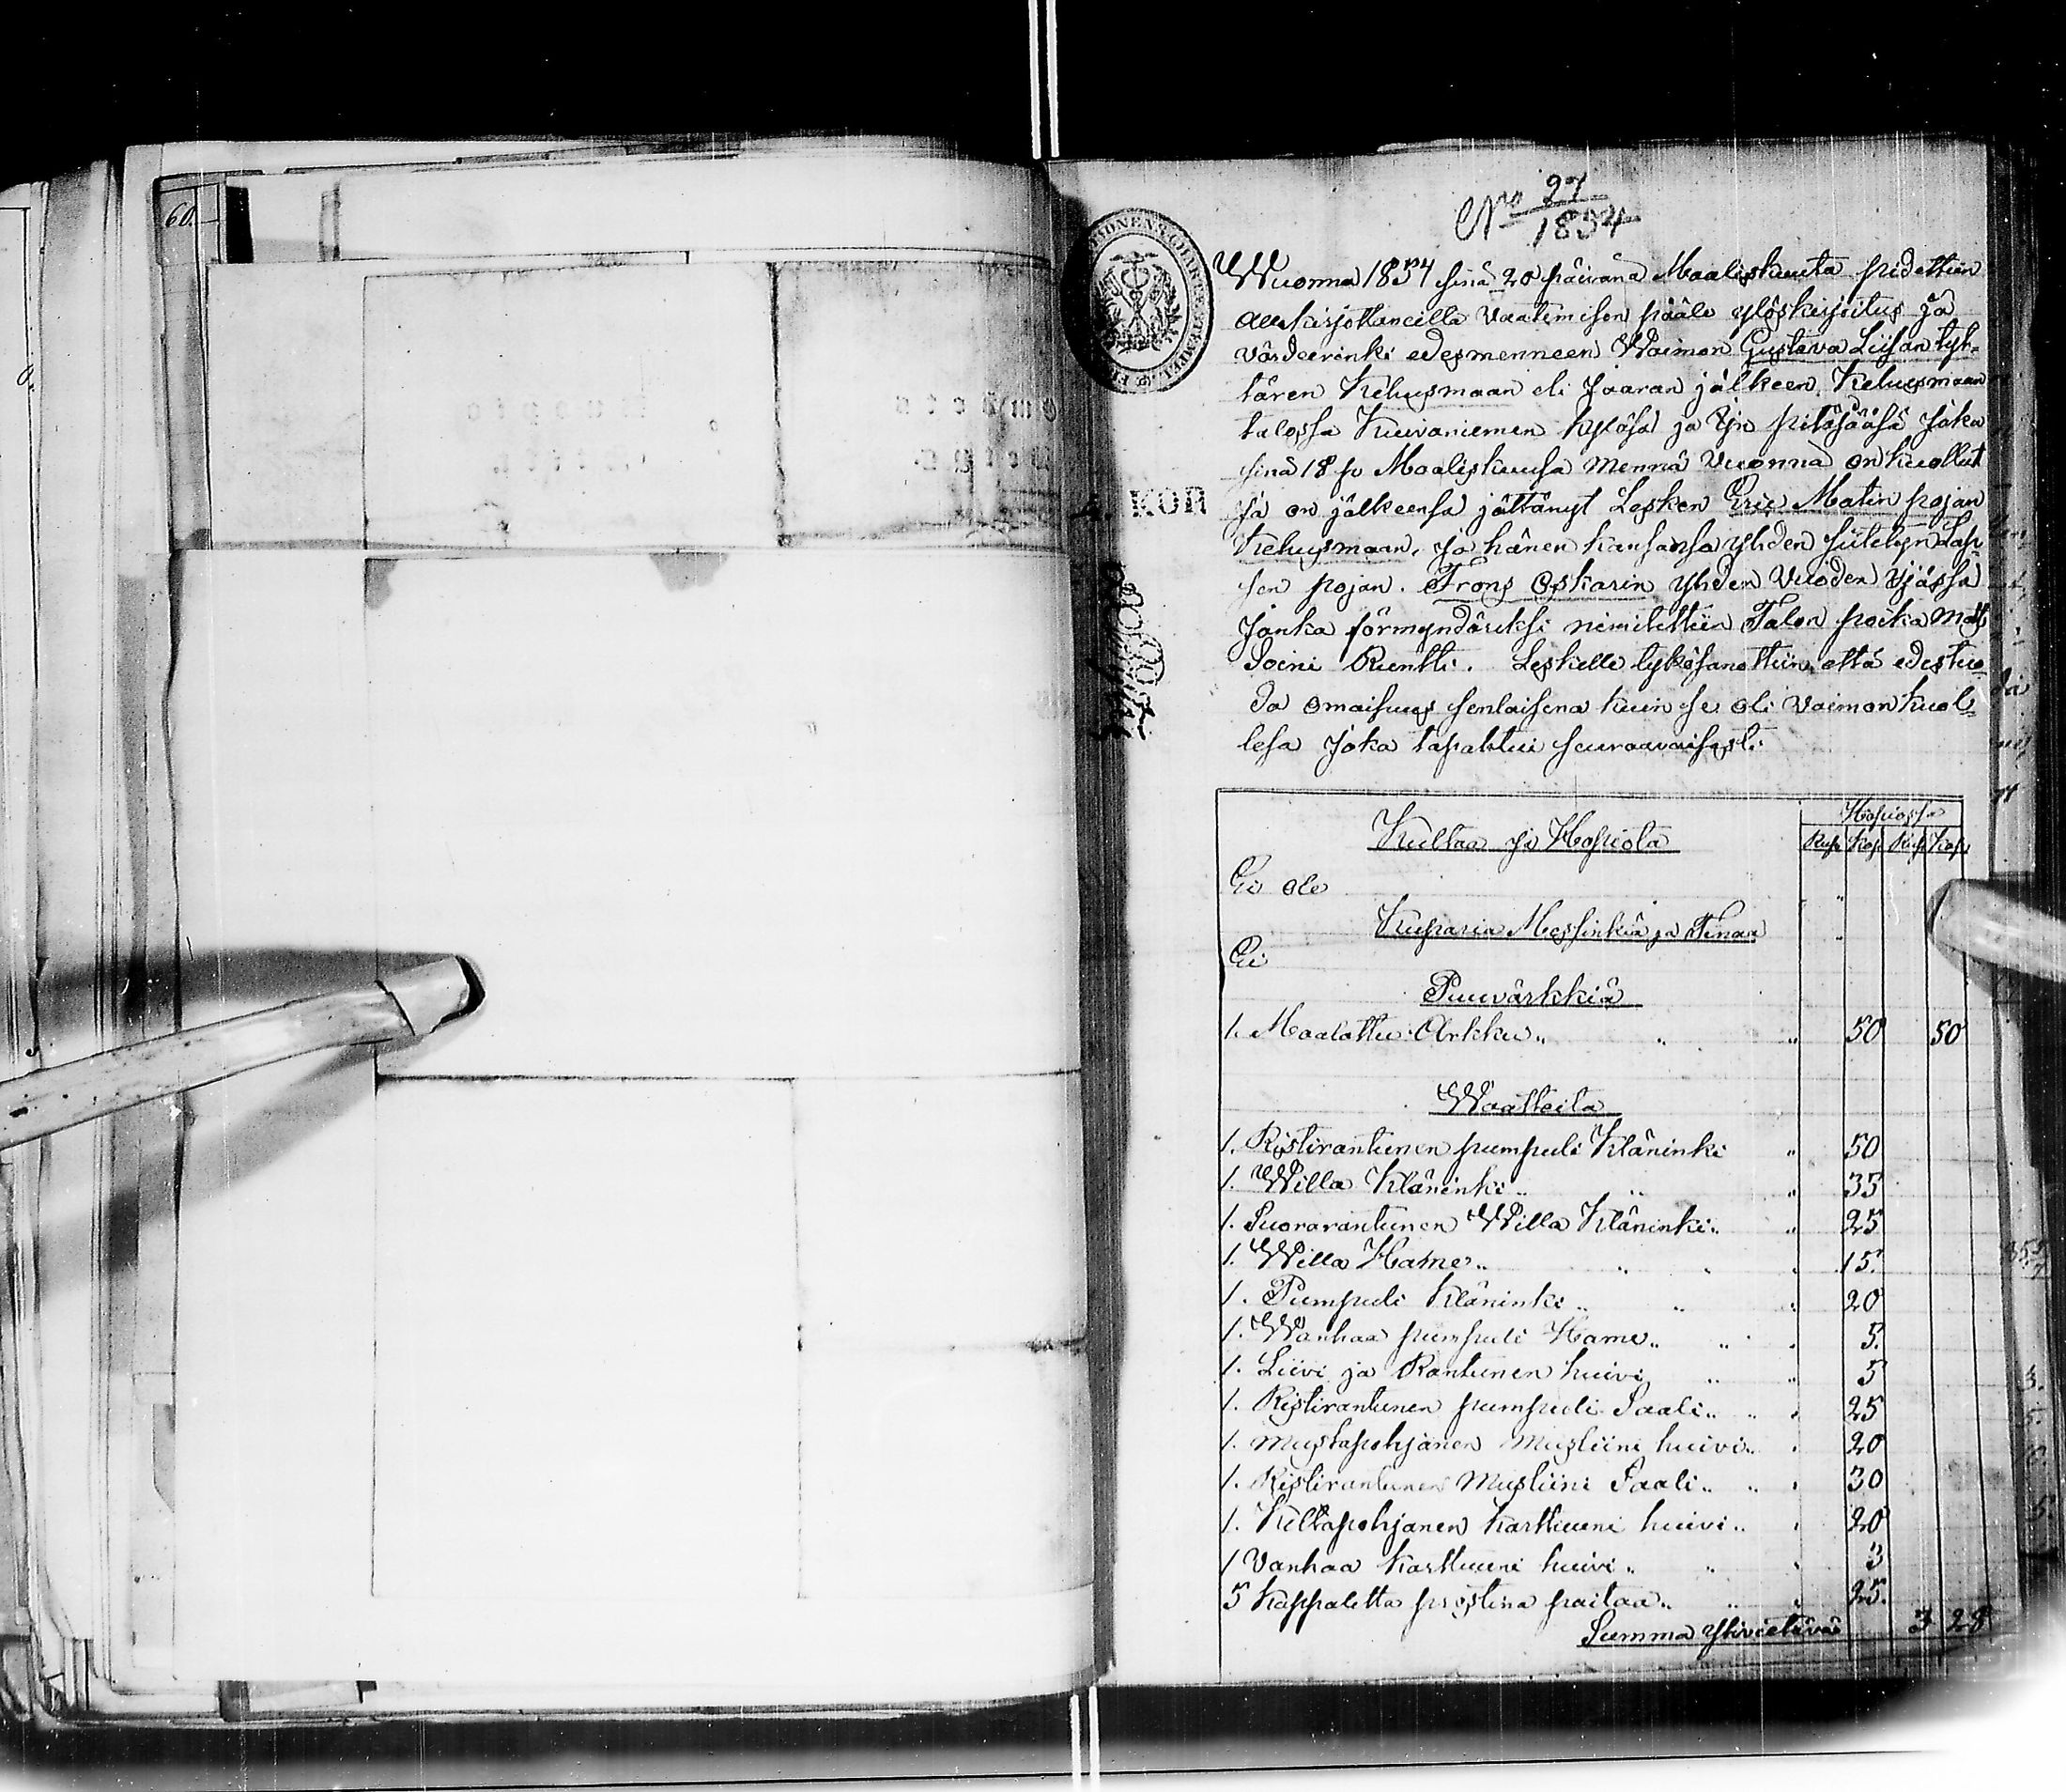 60.
No 27
1854
Wuonna 1854 sinä 20 päivänä Maaliskuuta pidettiin
allekirjottaneilta vaatimisen pääle ylöskirjoitus ja
värdeerinki edesmenneen Waimon Gustava Liisan tyt-
tären Kehusmaan eli Jaaran jälkeen, Kehusmaan
talossa Kuivaniemen kyläsä ja Ijn pitäjääsä joka
sinä 18 p Maaliskuusa mennä vuonna on kuollut
ja on jälkeensä jättänyt Lesken Eric Matin pojan
Kehusmaan, ja hänen kansansa yhden siitetyn Lap
sen pojan. Frans Oskarin yhden vuoden ijässä
jonka förmyndäriksi nimitettiin Talon poika Mats
Soini Ruontti. Leskelle tykösanottiin, että edestuo-
da omaisuus senlaisena kuin se oli vaimon kuol-
lesa joka tapahtui seuraavaisesti.
KOP
Hopiossa
Kultaa ja Hopiota
Rup. Kop. Rup. Kop.
Ei ole
Kuparia Messinkiä ja Tinaa
Ei
Puuvärkkiä
1. Maalattu Arkku „ „ „ 50 50
Waatteita
1. Ristirantunen pumpuli Kläninki „ 50
1. Willa Kläninki „ „ „ 35
1. Suorarantunen Willa Kläninki „ „ 25
1. Willa Hame „ „ „ „ 15.
1. Pumpuli Kläninki „ „ „ 20
1. Wanhaa pumpuli Hame „ „ „ 5.
1. Liivi ja Rantunen huivi „ „ 5
1. Ristirantunen pumpuli Saali „ „ „ 25
1. Mustapohjanen Musliini huivi „ „ 20
1. Ristirantunen Musliini Saali „ „ „ 30
1. Keltapohjanen Karttuuni huivi „ „ 20
1 Vanhaa Karttuuni huivi „ „ „ 3
5 Kappaletta prostina paitaa „ „ „ 25.
Summa Ylivietävä 3 28